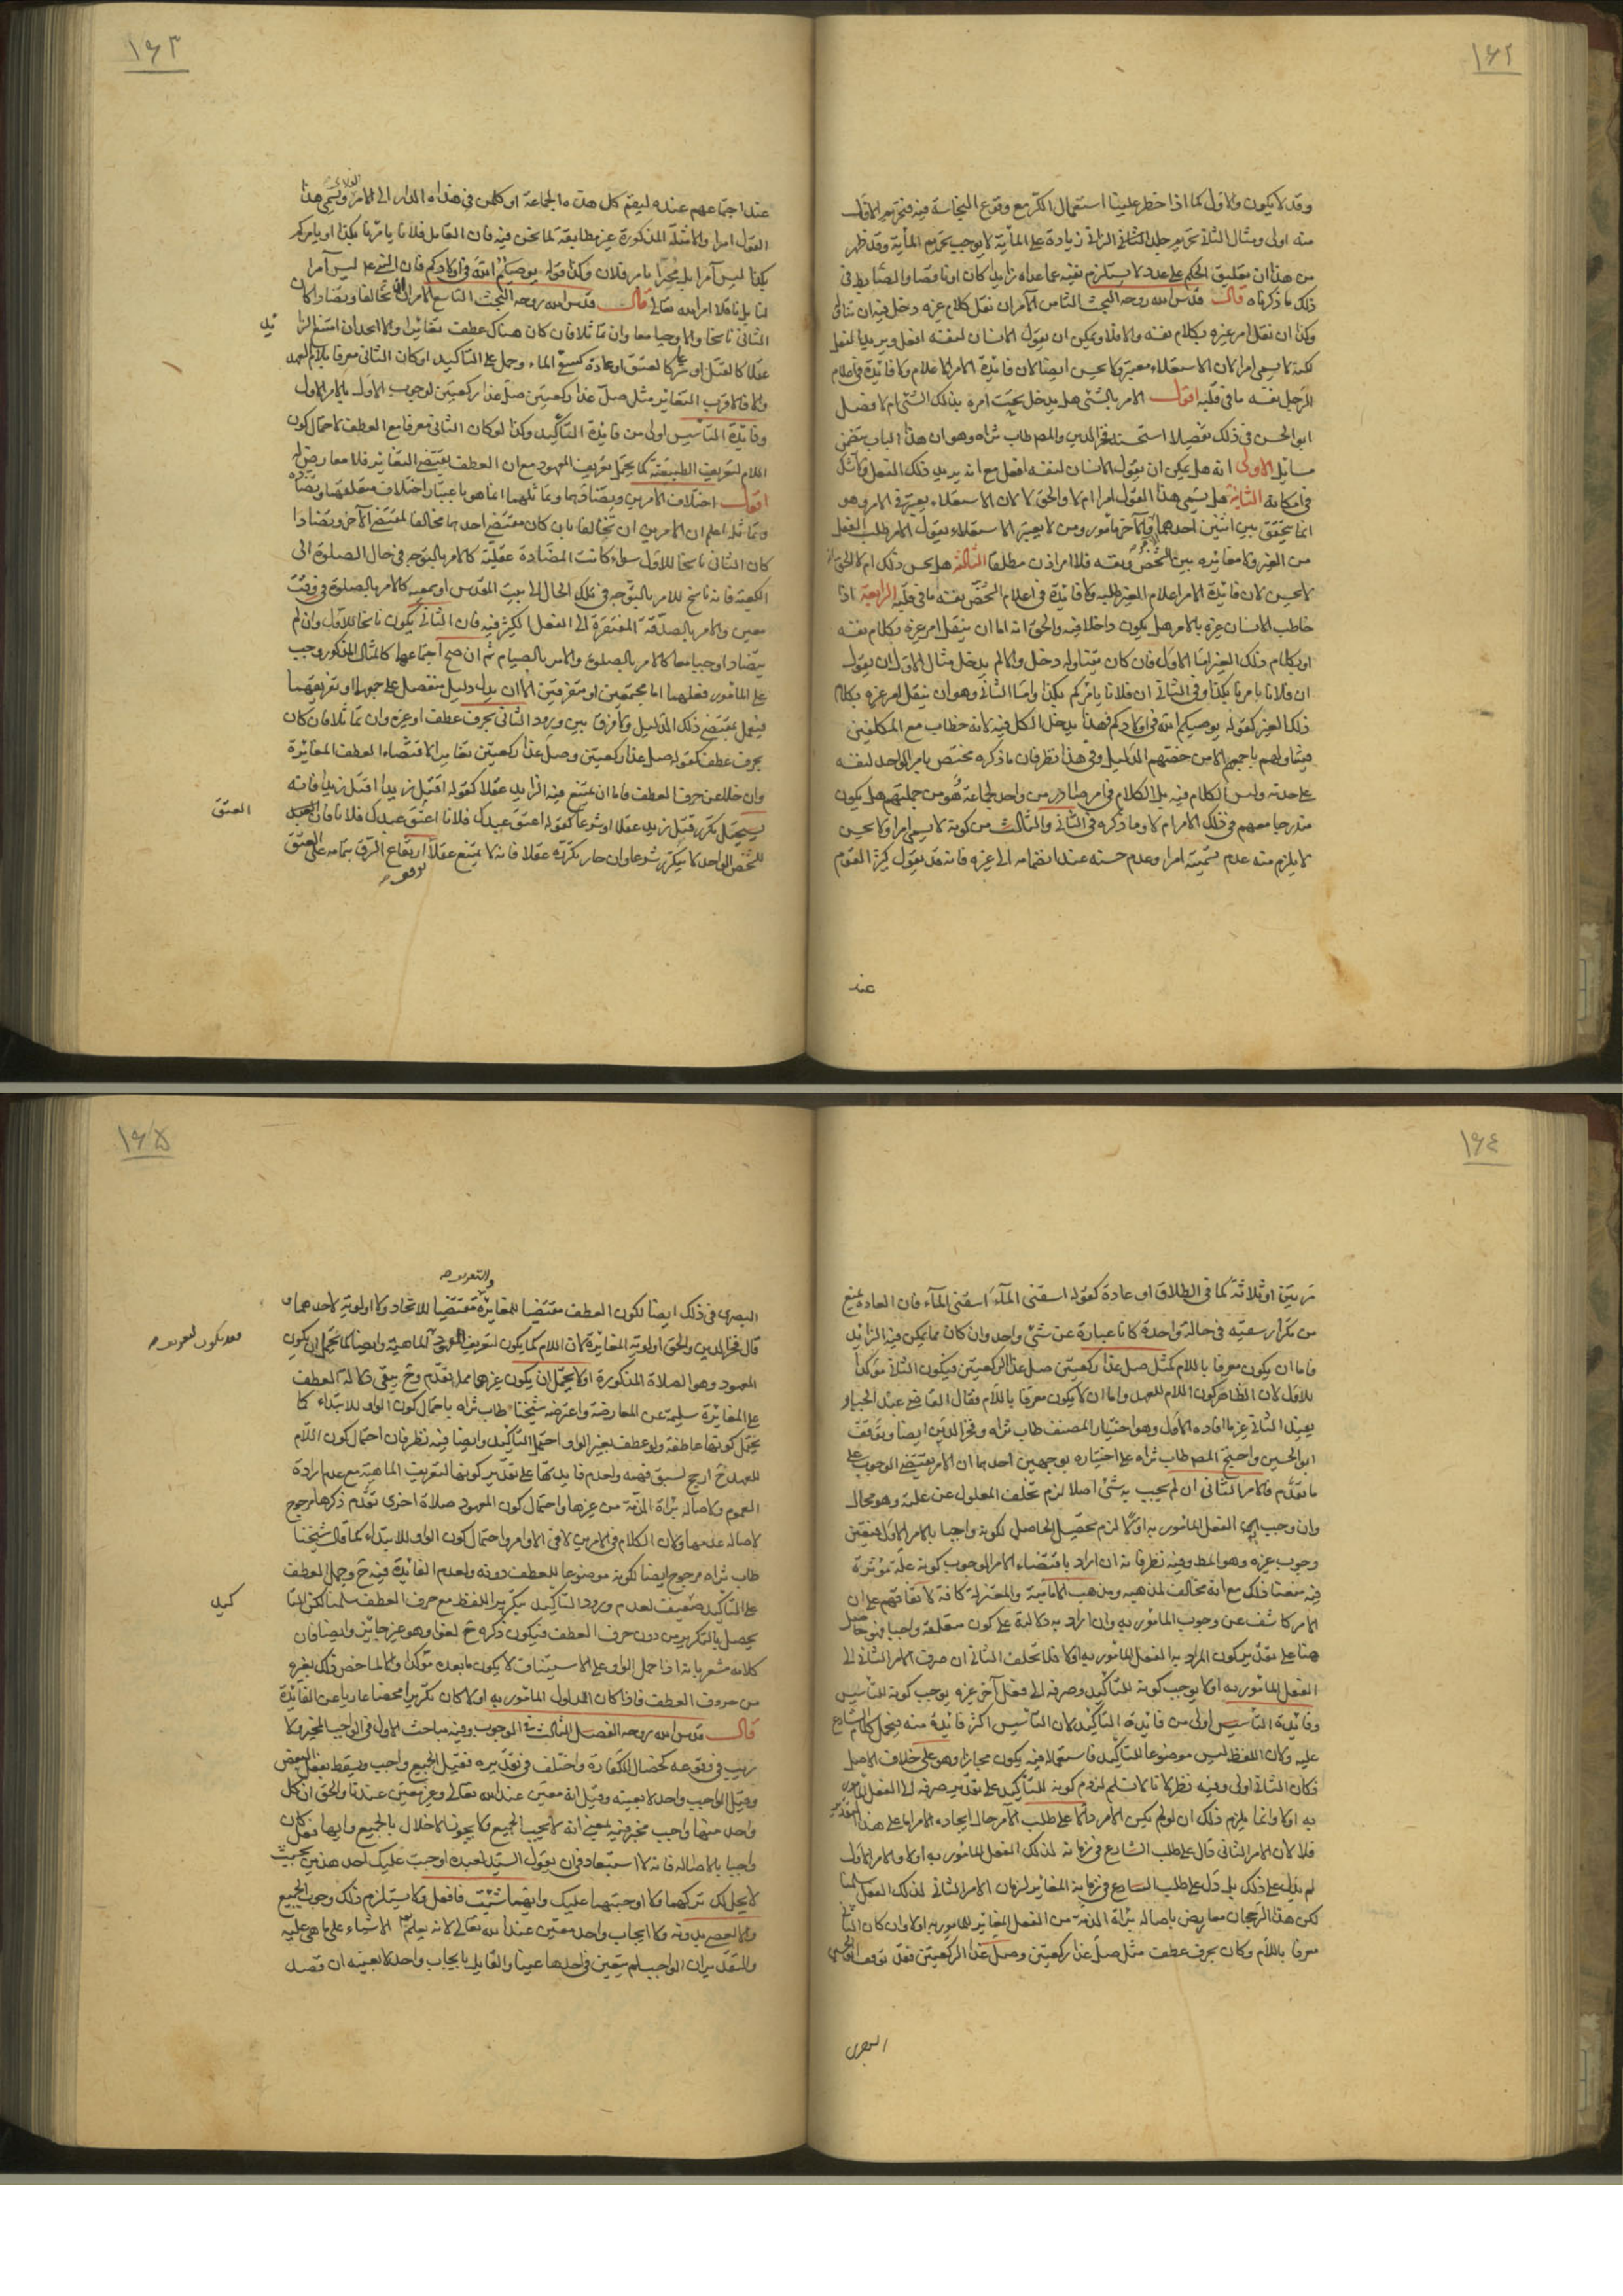 ١٦٢
وقد لا يكون والاول كما اذا حظر علينا استعمال الكر مع وقوع النجاسة فيه فتحريم الاقل
منه اولى ومثال الثاني تحريم جلد الزاني زيادة على الماية لا يوجب تحريم الماية وقد ظهر
من هذا ان تعليق الحكم على عدد لا يستلزم نفيه عما عداه زايدا كان او ناقصا والضابط في
ذلك ما ذكرناه قال قدس الله روحه البحث الثامن الآمر ان نقل كلام غيره دخل فيه ان تناوله
وكذا ان نقل امر غيره بكلام نفسه والا فلا ويمكن ان يقول الانسان لنفسه افعل ويريد الفعل
لكنه لا يسمى امرا لان الاستعلاء معتبر ولا يحسن ايضا لان فائدة الامر الاعلام ولا فائدة في اعلام
الرجل نفسه ما في قلبه اقول الامر بالشيء هل يدخل تحت امره بذلك الشيء ام لا فصل
ابو الحسن في ذلك تفصيلا استحسنه فخر الدين والمصـ طاب ثراه وهو ان هذا الباب يتضمن
مسائل الاولى انه هل يمكن ان يقول الانسان لنفسه افعل مع انه يريد ذلك الفعل ولا شك
في امكانه الثانية هل يسمى هذا القول امرا ام لا والحق لا لان الاستعلاء يعتبر في الامر وهو
انما يتحقق بين اثنين احدهما آمر والآخر مأمور ومن لا يعتبر الاستعلاء يقول الامر طلب الفعل
من الغير ولا مغايرة بين الشخص ونفسه فلا امر اذن مطلقا الثالثة هل يحسن ذلك ام لا الحق انه
لا يحسن لان فائدة الامر اعلام الغير طلبه ولا فائدة في اعلام الشخص نفسه ما في قلبه الرابعة اذا
خاطب الانسان غيره بالامر هل يكون داخلا فيه والحق انه اما ان ينقل امر غيره بكلام نفسه
او بكلام ذلك الغير اما الاول فان كان يتناوله دخل والا لم يدخل مثال الاول ان يقول
ان فلانا يأمرنا بكذا وفي الثاني ان فلانا يأمركم بكذا واما الثاني وهو ان ينقل امر غيره بكلام
ذلك الغير كقوله يوصيكم الله في اولادكم فهذا يدخل الكل فيه لانه خطاب مع المكلفين
فيتناولهم باجمعهم الا من خصهم الدليل وفي هذا نظر فان ما ذكره مختص بامر الواحد لنفسه
على حدته وليس الكلام فيه بل الكلام في امر صادر من واحد لجماعة هو من جملتهم هل يكون
مندرجا معهم في ذلك الامر ام لا وما ذكره في الثاني والثالث من كونه لا يسمى امرا ولا يحسن
لا يلزم منه عدم تسميته امرا وعدم حسنه عند انضمامه الى غيره فانه قد يقول كبير القوم
عند
١٦٣
عند اجتماعهم عنده ليقم كل هذه الجماعة او كل من في هذه الدار الى الامر الفلاني ويسمى هذا
القول امرا والامثلة المذكورة غير مطابقة لما نحن فيه فان القايل فلانا يأمرنا بكذا او يأمركم
بكذا ليس آمرا بل مخبرا بامر فلان وكذا قوله يوصيكم الله في اولادكم فان النبي ع ليس آمرا
لنا بل ناقلا امر الله تعالى قال قدس الله روحه البحث التاسع الامران ان تخالفا وتضادا كان
الثاني ناسخا والا وجبا معا وان تماثلا فان كان هناك عطف تغايرا والا اتحدا ان امتنع التزايد
عقلا كالقتل او شرعا كالعتق او عادة كسقي الماء وحمل على التاكيد او كان الثاني معرفا بلام العهد
والا فالاقرب التغاير مثل صل غدا ركعتين صل غدا ركعتين لوجوب الاول بالامر الاول
وفائدة التأسيس اولى من فائدة التأكيد وكذا لو كان الثاني معرفا مع العطف لاحتمال كون
اللام لتعريف الطبيعة كما يحتمل تعريف المعهود مع ان العطف يقتضي التغاير فلا معارض له
اقول اختلاف الامرين وتضادهما وتماثلهما انما هو باعتبار اختلاف متعلقهما وتضاده
وتماثله اعلم ان الامرين ان تخالفا بان كان مقتضى احدهما مخالفا لمقتضى الآخر وتضادا
كان الثاني ناسخا للاول سواء كانت المضادة عقلية كالامر بالتوجه في حال الصلوة الى
الكعبة فانه ناسخ للامر بالتوجه في تلك الحال الى بيت المقدس او سمعية كالامر بالصلوة في وقت
معين والامر بالصدقة المفتقرة الى الفعل الكثير فيه فان الثاني يكون ناسخا للاول وان لم
يتضادا وجبا معا كالامر بالصلوة والامر بالصيام ثم ان صح اجتماعهما كالمثال المذكور وجب
على المأمور فعلهما اما مجتمعين او متفرقين الا ان يدل دليل منفصل على جمعهما او تفريقهما
فيعمل بمقتضى ذلك الدليل ولا فرق بين ورود الثاني بحرف عطف او غيره وان تماثلا فان كان
بحرف عطف كقوله صل غدا ركعتين وصل غدا ركعتين تغايرا لاقتضاء العطف المغايرة
وان خلا عن حرف العطف فاما ان يمتنع فيه التزايد عقلا كقوله اقتل زيدا اقتل زيدا فانه
يستحيل تكرر قتل زيد عقلا او شرعا كقوله اعتق عبدك فلانا اعتق عبدك فلانا فان العتق
للشخص الواحد لا يتكرر شرعا وان جاز تكرره عقلا فانه لا يمتنع عقلا ارتفاع الرق بتمامه على العتق
العتق
١٦٤
مرتين او ثلاثة كما في الطلاق او عادة كقوله اسقني الماء اسقني الماء فان العادة تمنع
من تكرار سقيه في حالة واحدة كانا عبارة عن شيء واحد وان كان مما يمكن فيه التزايد
فاما ان يكون معرفا باللام كمثل صل غدا ركعتين صل غدا الركعتين فيكون الثاني مؤكدا
للاول لان الظاهر كون اللام للعهد واما ان لا يكون معرفا باللام فقال القاضي عبد الجبار
يفيد الثاني غير ما افاده الاول وهو اختيار المصنف طاب ثراه وفخر الدين ايضا وتوقف
ابو الحسين واحتج المصـ طاب ثراه على اختياره بوجهين احدهما ان الامر يقتضي الوجوب على
ما تقدم فالامر الثاني ان لم يجب به شيء اصلا لزم تخلف المعلول عن علته وهو محال
وان وجب به الفعل المأمور به اولا لزم تحصيل الحاصل لكونه واجبا بالامر الاول فتعين
وجوب غيره وهو المطـ وفيه نظر فانه ان اراد باقتضاء الامر الوجوب كونه علة مؤثرة
فيه منعنا ذلك مع انه مخالف لمذهبه ومذهب الامامية والمعتزلة كافة لاتفاقهم على ان
الامر كاشف عن وجوب المأمور به وان اراد به دلالته على كون متعلقه واجبا فهو حاصل
هنا على تقدير كون المراد به الفعل المأمور به اولا فلا تخلف الثاني ان صرف الامر الثاني الى
الفعل المأمور به اولا يوجب كونه للتأكيد وصرفه الى فعل آخر غيره يوجب كونه للتأسيس
وفائدة التأسيس اولى من فائدة التأكيد لان التأسيس اكثر فائدة منه فيحمل كلام الشارع
عليه ولان اللفظ ليس موضوعا للتأكيد فاستعماله فيه يكون مجازا وهو على خلاف الاصل
فكان الثاني اولى وفيه نظر لانا لا نسلم لزوم كونه للتأكيد على تقدير صرفه الى الفعل المأمور
به اولا وانما يلزم ذلك ان لو لم يكن الامر دالا على طلب الآمر حال ايجاده الامر اما على هذا التقدير
فلا لان الامر الثاني دال على طلب الشارع في زمانه لذلك الفعل المأمور به اولا والامر الاول
لم يدل على ذلك بل دل على طلب الشارع في زمانه المغاير لزمان الامر الثاني لذلك الفعل سلمنا
لكن هذا الرجحان معارض باصالة براءة الذمة من الفعل المغاير للمأمور به اولا وان كان الثاني
معرفا باللام وكان بحرف عطف مثل صل غدا ركعتين وصل غدا الركعتين فقد توقف ابو الحسين
البصري
١٦٥
البصري في ذلك ايضا لكون العطف مقتضيا للمغايرة والتعريف مقتضيا للاتحاد ولا اولوية لاحدهما و
قال فخر الدين والحق اولوية المغايرة لان اللام كما يكون لتعريف الماهية وايضا كما يحتمل ان يكون
المعهود وهو الصلاة المذكورة اولا يحتمل ان يكون غيرهما مما تقدم وح يبقى دلالة العطف
على المغايرة سليمة عن المعارضة واعترضه شيخنا طاب ثراه باحتمال كون الواو للابتداء كما
يحتمل كونها عاطفة ولو عطف بغير الواو احتمل التأكيد وايضا فيه نظر فان احتمال كون اللام
للعهد ح ارجح لسبق فهمه ولعدم فايدتها على تقدير كونها لتعريف الماهية مع عدم ارادة
العموم ولاصالة براءة الذمة من غيرها واحتمال كون المعهود صلاة اخرى تقدم ذكرها مرجوح
لاصالة عدمها ولان الكلام في الامرين لا في الاوامر واحتمال كون الواو للابتداء كما قال شيخنا
طاب ثراه مرجوح ايضا لكونه موضوعا للعطف دونه ولعدم الفائدة فيه ح وحمل العطف
على التأكيد ضعيف لعدم ورود التأكيد بتكرير اللفظ مع حرف العطف سلمنا لكن التأ
كيد
يحصل بالتكرير من دون حرف العطف فيكون ذكره ح لغوا وهو غير جائز وايضا فان
كلامه مشعر بانه اذا حمل الواو على الاستيناف لا يكون ما بعده مؤكدا والا لما خص ذلك بغيره
من حروف العطف فاذا كان المدلول المأمور به اولا كان تكريرا محضا عاريا عن الفائدة
قال قدس الله روحه الفصل الثالث في الوجوب وفيه مباحث الاول في الواجب المخير ولا
ريب في وقوعه كخصال الكفارة واختلف في تقديره فقيل الجميع واجب ويسقط بفعل البعض
وقيل الواجب واحد لا بعينه وقيل انه معين عند الله تعالى وغير معين عندنا والحق ان كل
واحد منها واجب مخير فيه بمعنى انه لا يجب الجميع ولا يجوز الاخلال بالجميع وايها فعل كان
واجبا بالاصالة فانه لا استبعاد في ان يقول السيد لعبده اوجبت عليك احد هذين بحيث
لا يحل لك تركهما ولا اوجبتهما عليك وايهما شئت فافعل ولا يستلزم ذلك وجوب الجميع
ولا البعض بدونه ولا ايجاب واحد معين عند الله تعالى لانه يعلم الاشياء على ما هي عليه
والتقدير ان الواجب لم يتعين في احدهما عينا والقايل بايجاب واحد لا بعينه ان قصد